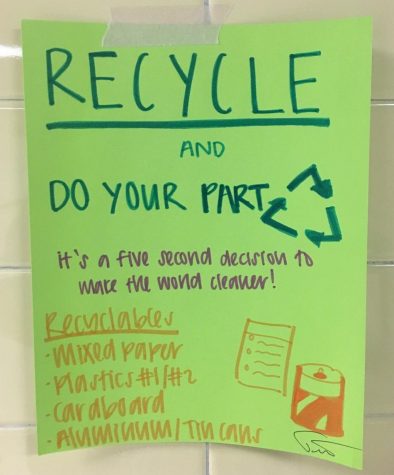 RECYCLE
AND
DO YOUR PART
it's a five second decision to
make the world cleaner!
Recyclables
·Mixed paper
·Plastics #1/#2
·Cardboard
·Aluminum/Tin cans